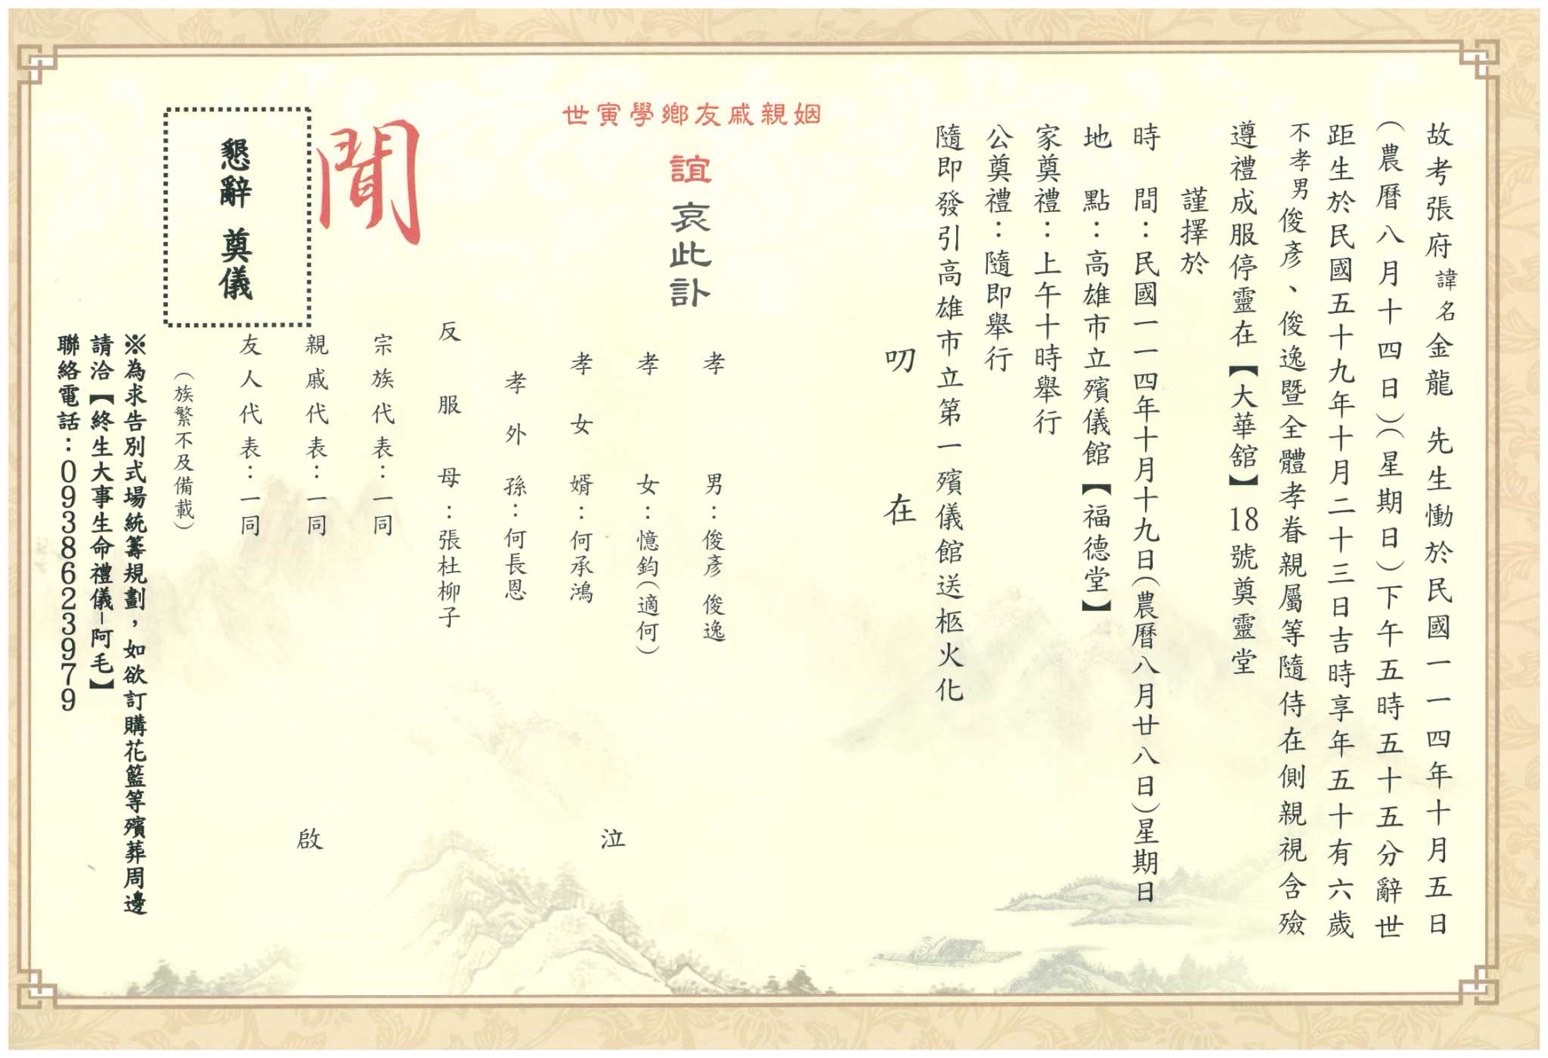 故考張府諱名金龍 先生慟於民國一一四年十月五日
(農曆八月十四日)(星期日)下午五時五十五分辭世
距生於民國五十九年十月二十三日吉時享年五十有六歲
不孝男俊彥、俊逸暨全體孝眷親屬等隨侍在側親視含殮
遵禮成服停靈在【大華舘】18號奠靈堂
謹擇於
時 間：民國一一四年十月十九日(農曆八月廿八日)星期日
地 點：高雄市立殯儀館【福德堂】
家奠禮：上午十時舉行
公奠禮：隨即舉行
隨即發引高雄市立第一殯儀館送柩火化
叨 在
姻親戚友鄉學寅世
誼哀此訃
孝 男：俊彥 俊逸
孝 女：憶鈞(適何)
孝女婿：何承鴻
孝外孫：何長恩
泣
反服母：張杜柳子
宗族代表：一同
親戚代表：一同
友人代表：一同
啟
(族繁不及備載)
聞
懇辭 奠儀
※為求告別式場統籌規劃，如欲訂購花籃等殯葬周邊
請洽【終生大事生命禮儀-阿毛】
聯絡電話：0938623979